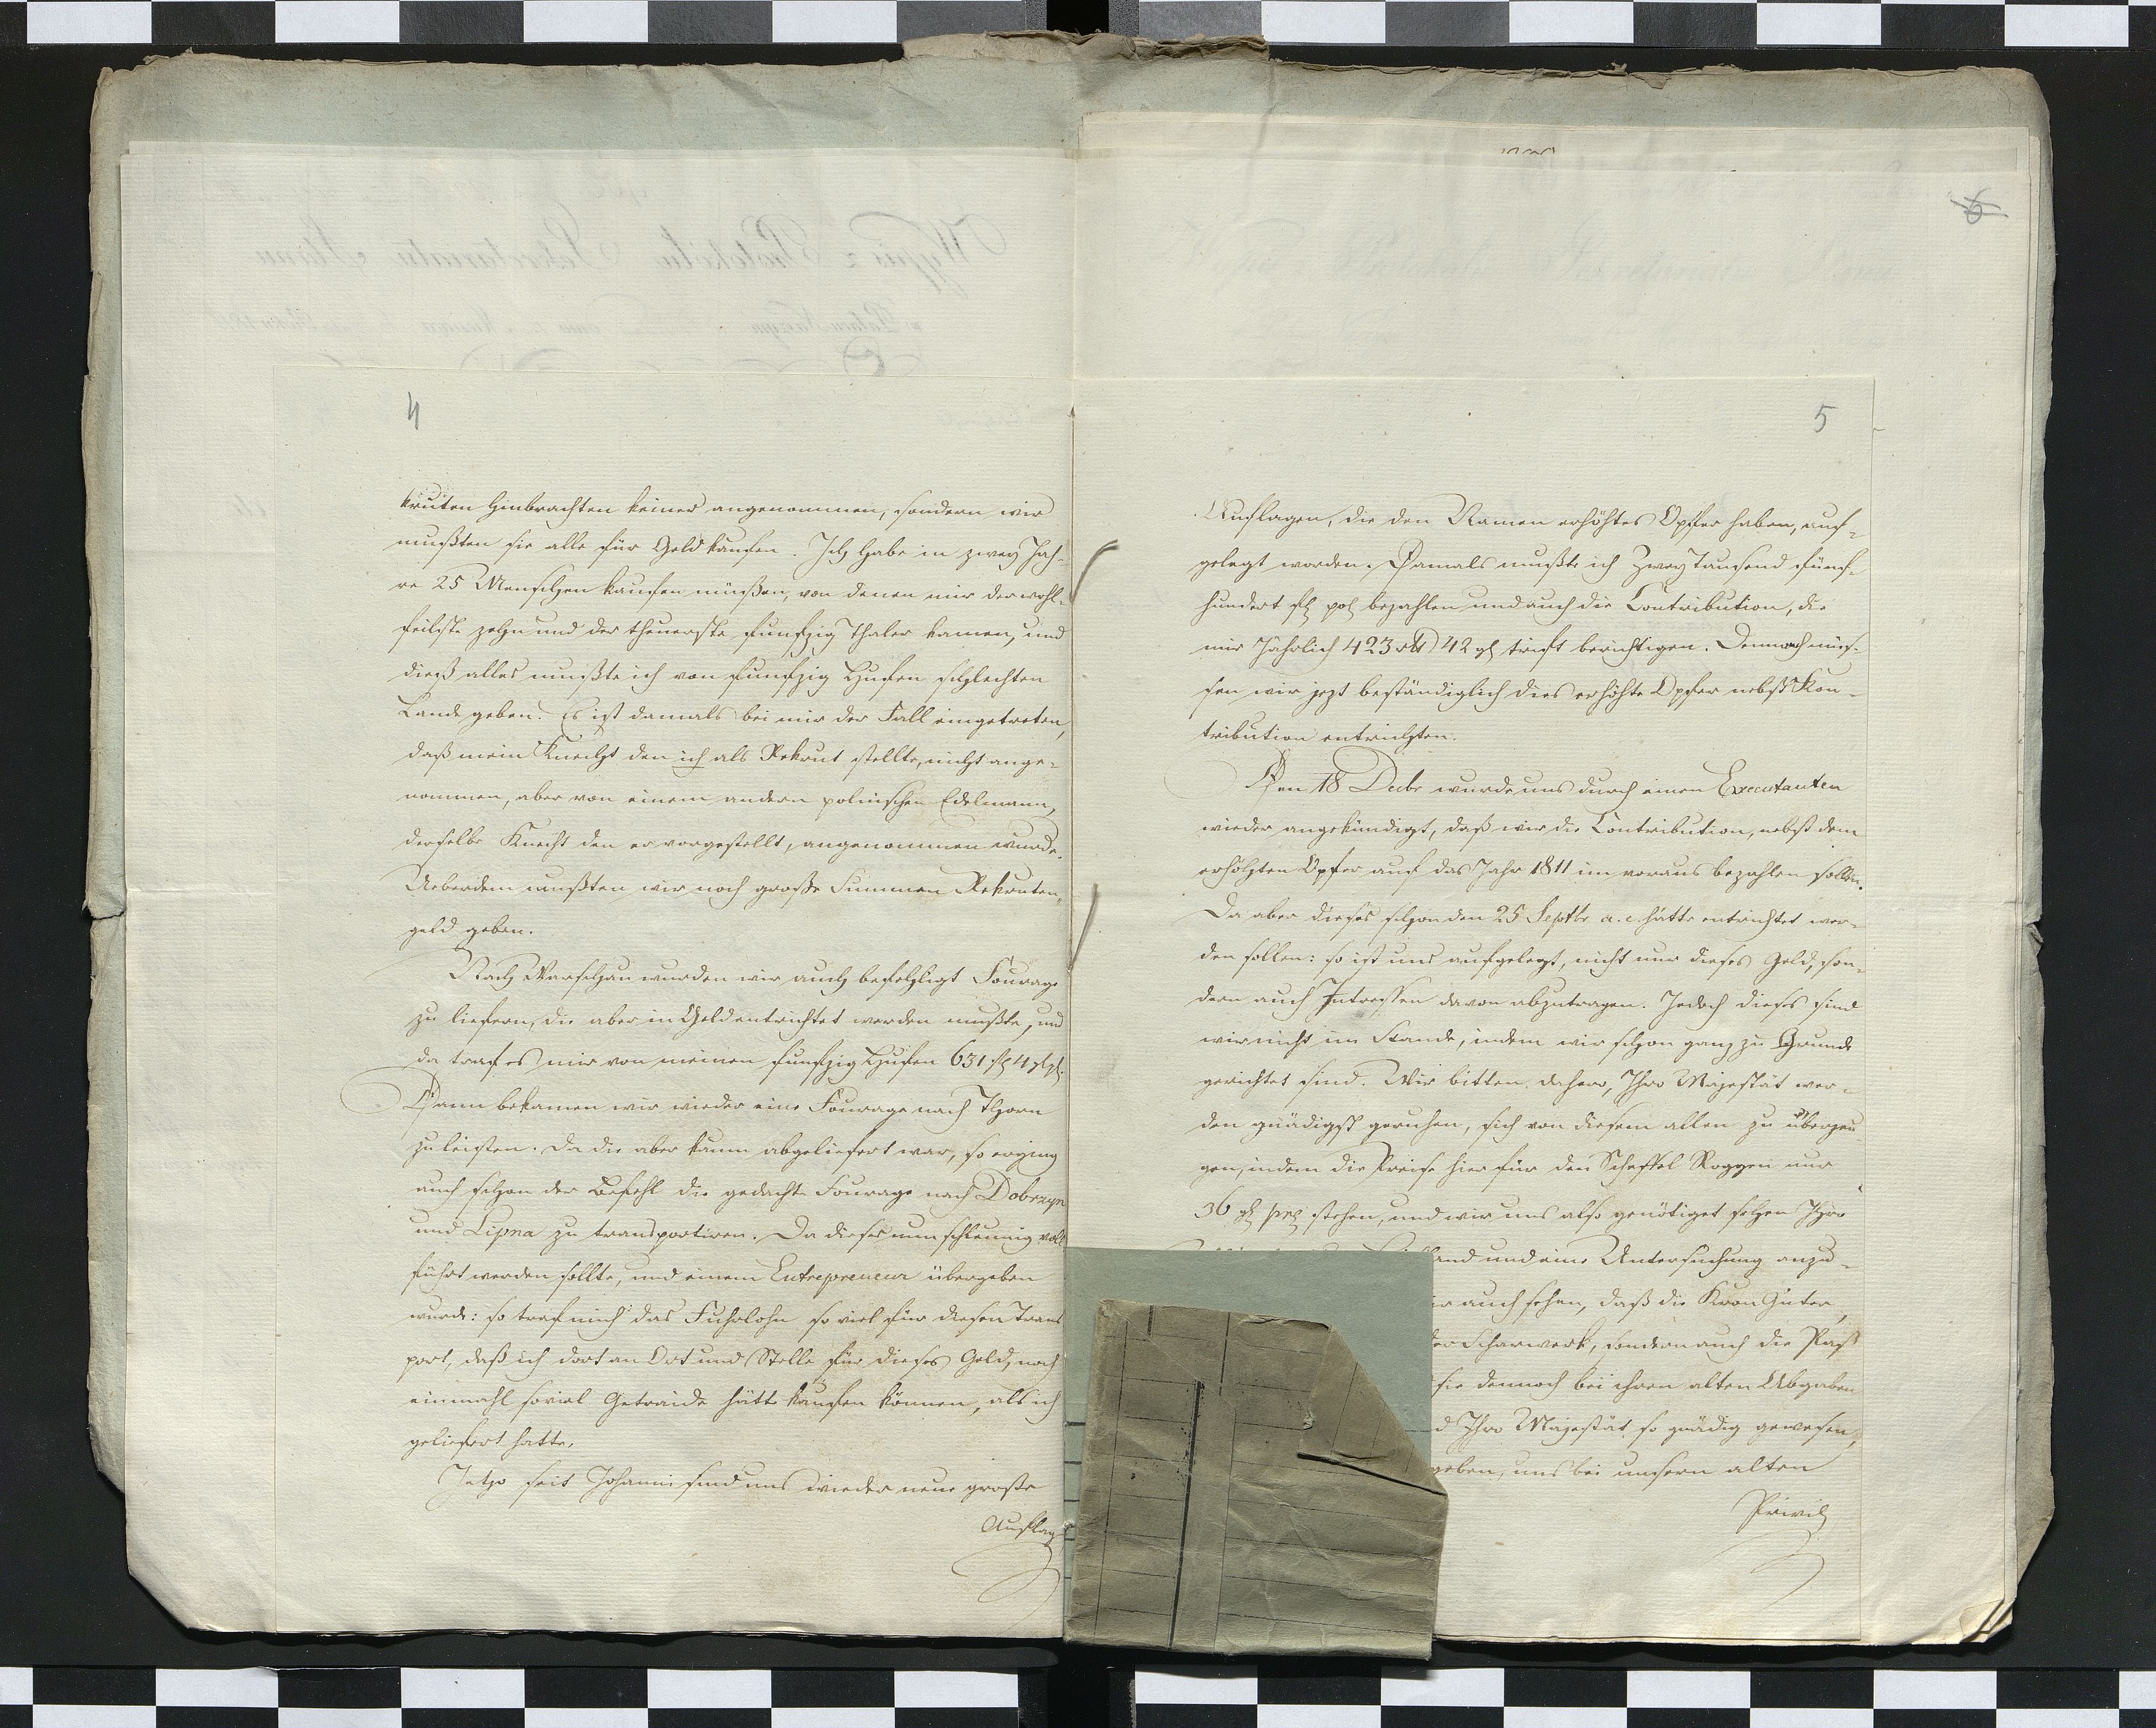 4
kruten hinbrachten keiner angenommen, sondern wir
mußten sie alle für Geld kaufen. Ich habe in zwey Jah-
re 25 Menschen kaufen müßen, von denen mir der wohl-
feilste zehn und der theuerste funfzig Thaler kamen, und
dieß alles mußte ich von funfzig Hufen schlechten
Lande geben. Es ist damals bei mir der Fall eingetreten,
daß mein Knecht den ich als Rekrut stellte, nicht ange-
nommen, aber von einem andern polnischen Edelmann,
derselbe Knecht den er vorgestellt, angenommen wurde.
Ueberdem mußten wir noch große Summen Rekruten-
geld geben.
Nach Warschau wurden wir auch befehligt Fourage
zu liefern, die aber in Geld entrichtet werden mußte, und
da traf es mir von meinen funfzig Hufen 631 fl 4
Dann bekamen wir wieder eine Fourage nach Thorn
zu leisten. Da die aber kaum abgeliefert war, so erging
auch schon der Befehl die gedachte Fourage nach Dobrzyn
und Lipna zu transportiren. Da dieses nun schleunig voll
führt werden sollte, und einem Entrepreneur übergeben
wurde: so traf mich das Fuhrlohn so viel für diesen Trans
port, daß ich dort an Ort und Stelle für dieses Geld, noch
einmahl soviel Getraide hätte kaufen können, als ich
geliefert hatte.
Jetzo seit Johanni sind uns wieder neue große
Auflag
6
5
Auflagen, die den Namen erhöhtes Opfer haben, auf-
gelegt worden. Damals mußte ich Zwey Tausend fünf-
hundert fl pol bezahlen und auch die Contribution, die
mir Jahrlich 423 42 trift berichtigen. Dennoch müs-
sen wir jezt beständiglich dies erhöhte Opfer nebst Kon-
tribution entrichten.
Den 18 Decbr wurde uns durch einen Executanten
wieder angekündigt, daß wir die Contribution, nebst dem
erhöhten Opfer auf das Jahr 1811 im voraus bezahlen sollen.
Da aber dieses schon den 25 Septbr a. c. hätte entrichtet wer-
den sollen: so ist uns aufgelegt, nicht nur dieses Geld, son-
dern auch Intressen davon abzutragen. Jedoch dieses sind
wir nicht im Stande, indem wir schon ganz zu Grunde
gerichtet sind. Wir bitten dahero, Ihro Majestät wer-
den gnädigst geruhen, sich von diesem allen zu überzeu
gen, indem die Preise hier für den Scheffel Roggen nur
36 stehen, und wir uns also genötiget sehen Ihro
und eine Untersuchung anzu-
auch sehen, daß die Kron Güter,
Scharwerk, sondern auch die
sie dennoch bei ihren alten Abgaben
Ihro Majestät so gnädig gewesen,
geben, uns bei unsern alten
Privil